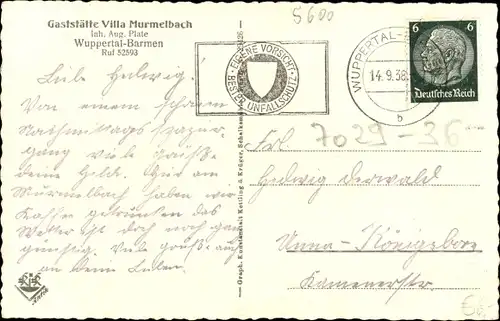 5600
Gaststätte Villa Murmelbach
Inh. Aug. Plate
Wuppertal-Barmen
Ruf 52593
EIGENE VORSICHT
BESTER UNFALLSCHUTZ
WUPPERTAL-
14.9.38.
b
6 6
Deutsches Reich
Liebe Hedwig!
Von einem schönen
Nachmittags spazier-
gang viele Grüße
deine Hilde. Hier am
Murmelbach haben wir
Kaffee getrunken das
Wetter ist doch noch ganz
günstig. Viele Grüße auch
an deine Lieben.
Graph. Kunstanstalt Kettling & Krüger, Schalksmühle
7029-36
Frl.
Hedwig Derwald
Unna-Königsborn
Kamenerstr.